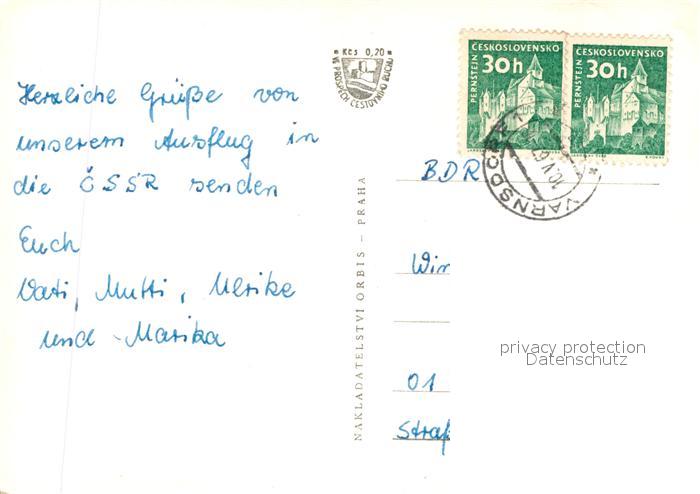 Herzliche Grüße von
unserem Ausflug in
die ČSSR senden
Euch
Vati, Mutti, Ulrike
und Marika
Kčs 0,20
VE PROSPĚCH CESTOVNÍHO RUCHU
NAKLADATELSTVÍ ORBIS – PRAHA
ČESKOSLOVENSKO
30h
PERNŠTEJN
ČESKOSLOVENSKO
30h
PERNŠTEJN
VARNSDORF
BDR
Wir
01
Straß
privacy protection
Datenschutz